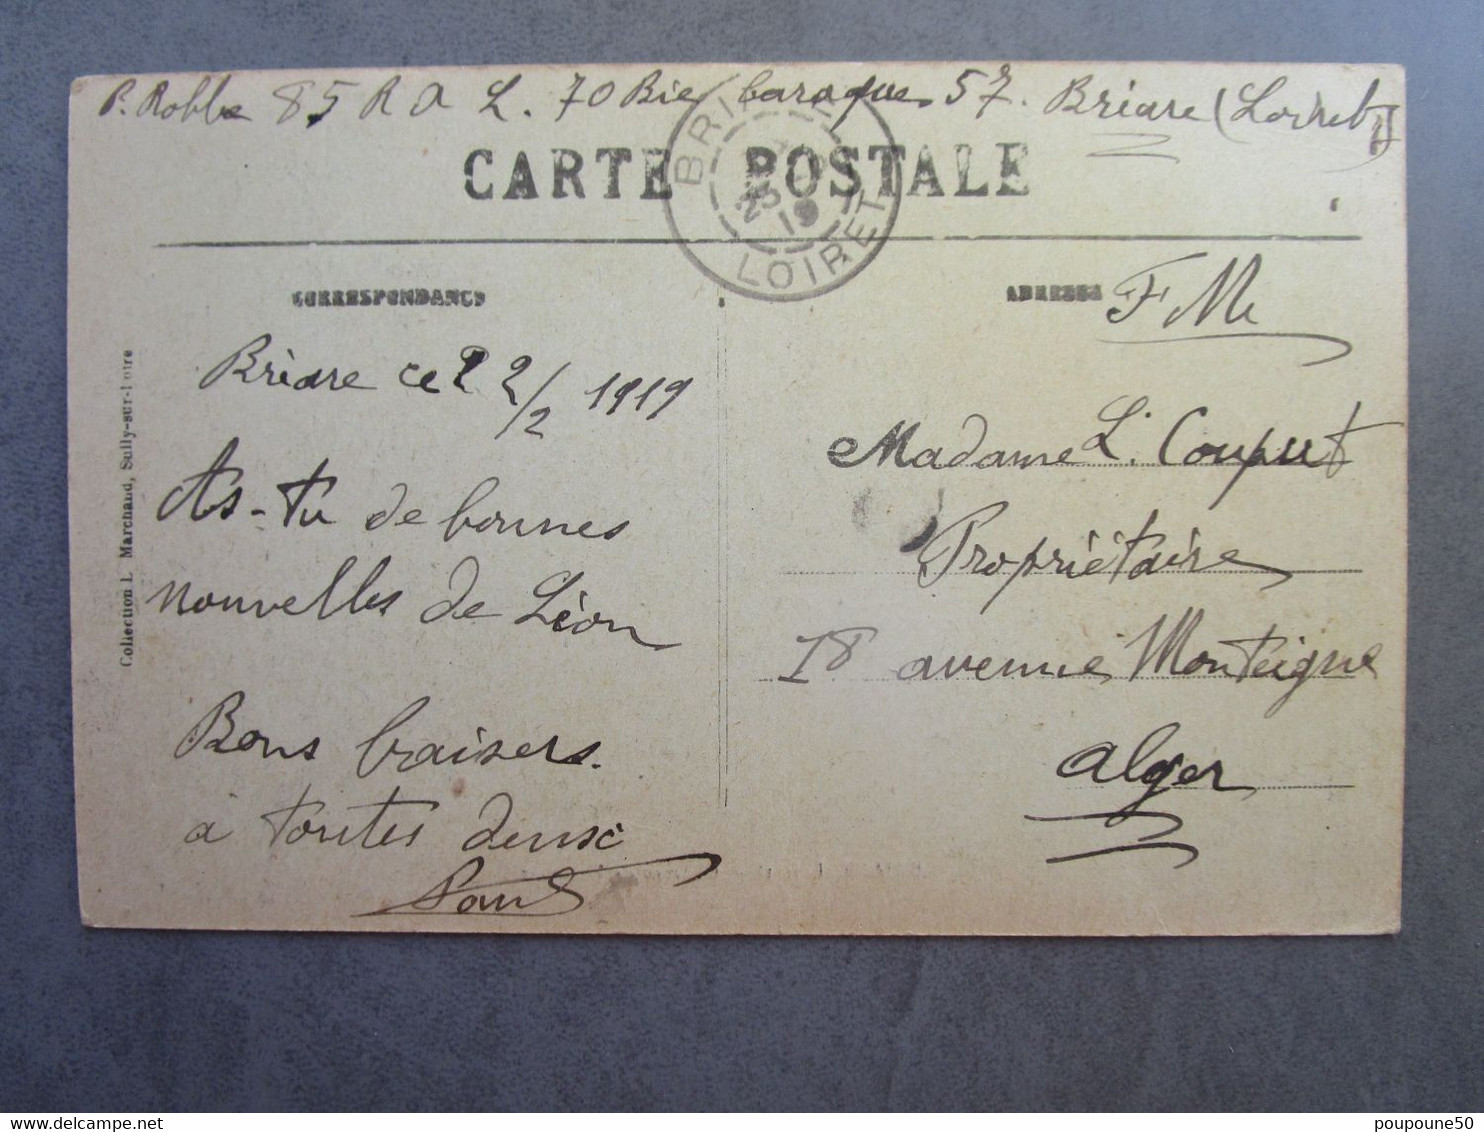 P. Robbe 85 R A L. 70 Bie baraque 57. Briare (Loiret)
CARTE POSTALE
BRIARE
23
19
LOIRET
CORRESPONDANCE
ADRESSE
F M
Briare ce 22/2 1919
As-tu de bonnes
nouvelles de Léon
Bons baisers.
à toutes deux
Paul
Madame L. Couput
Propriétaire
18 avenue Monteigne
Alger
Collection L. Marchand, Sully-sur-Loire
poupoune50